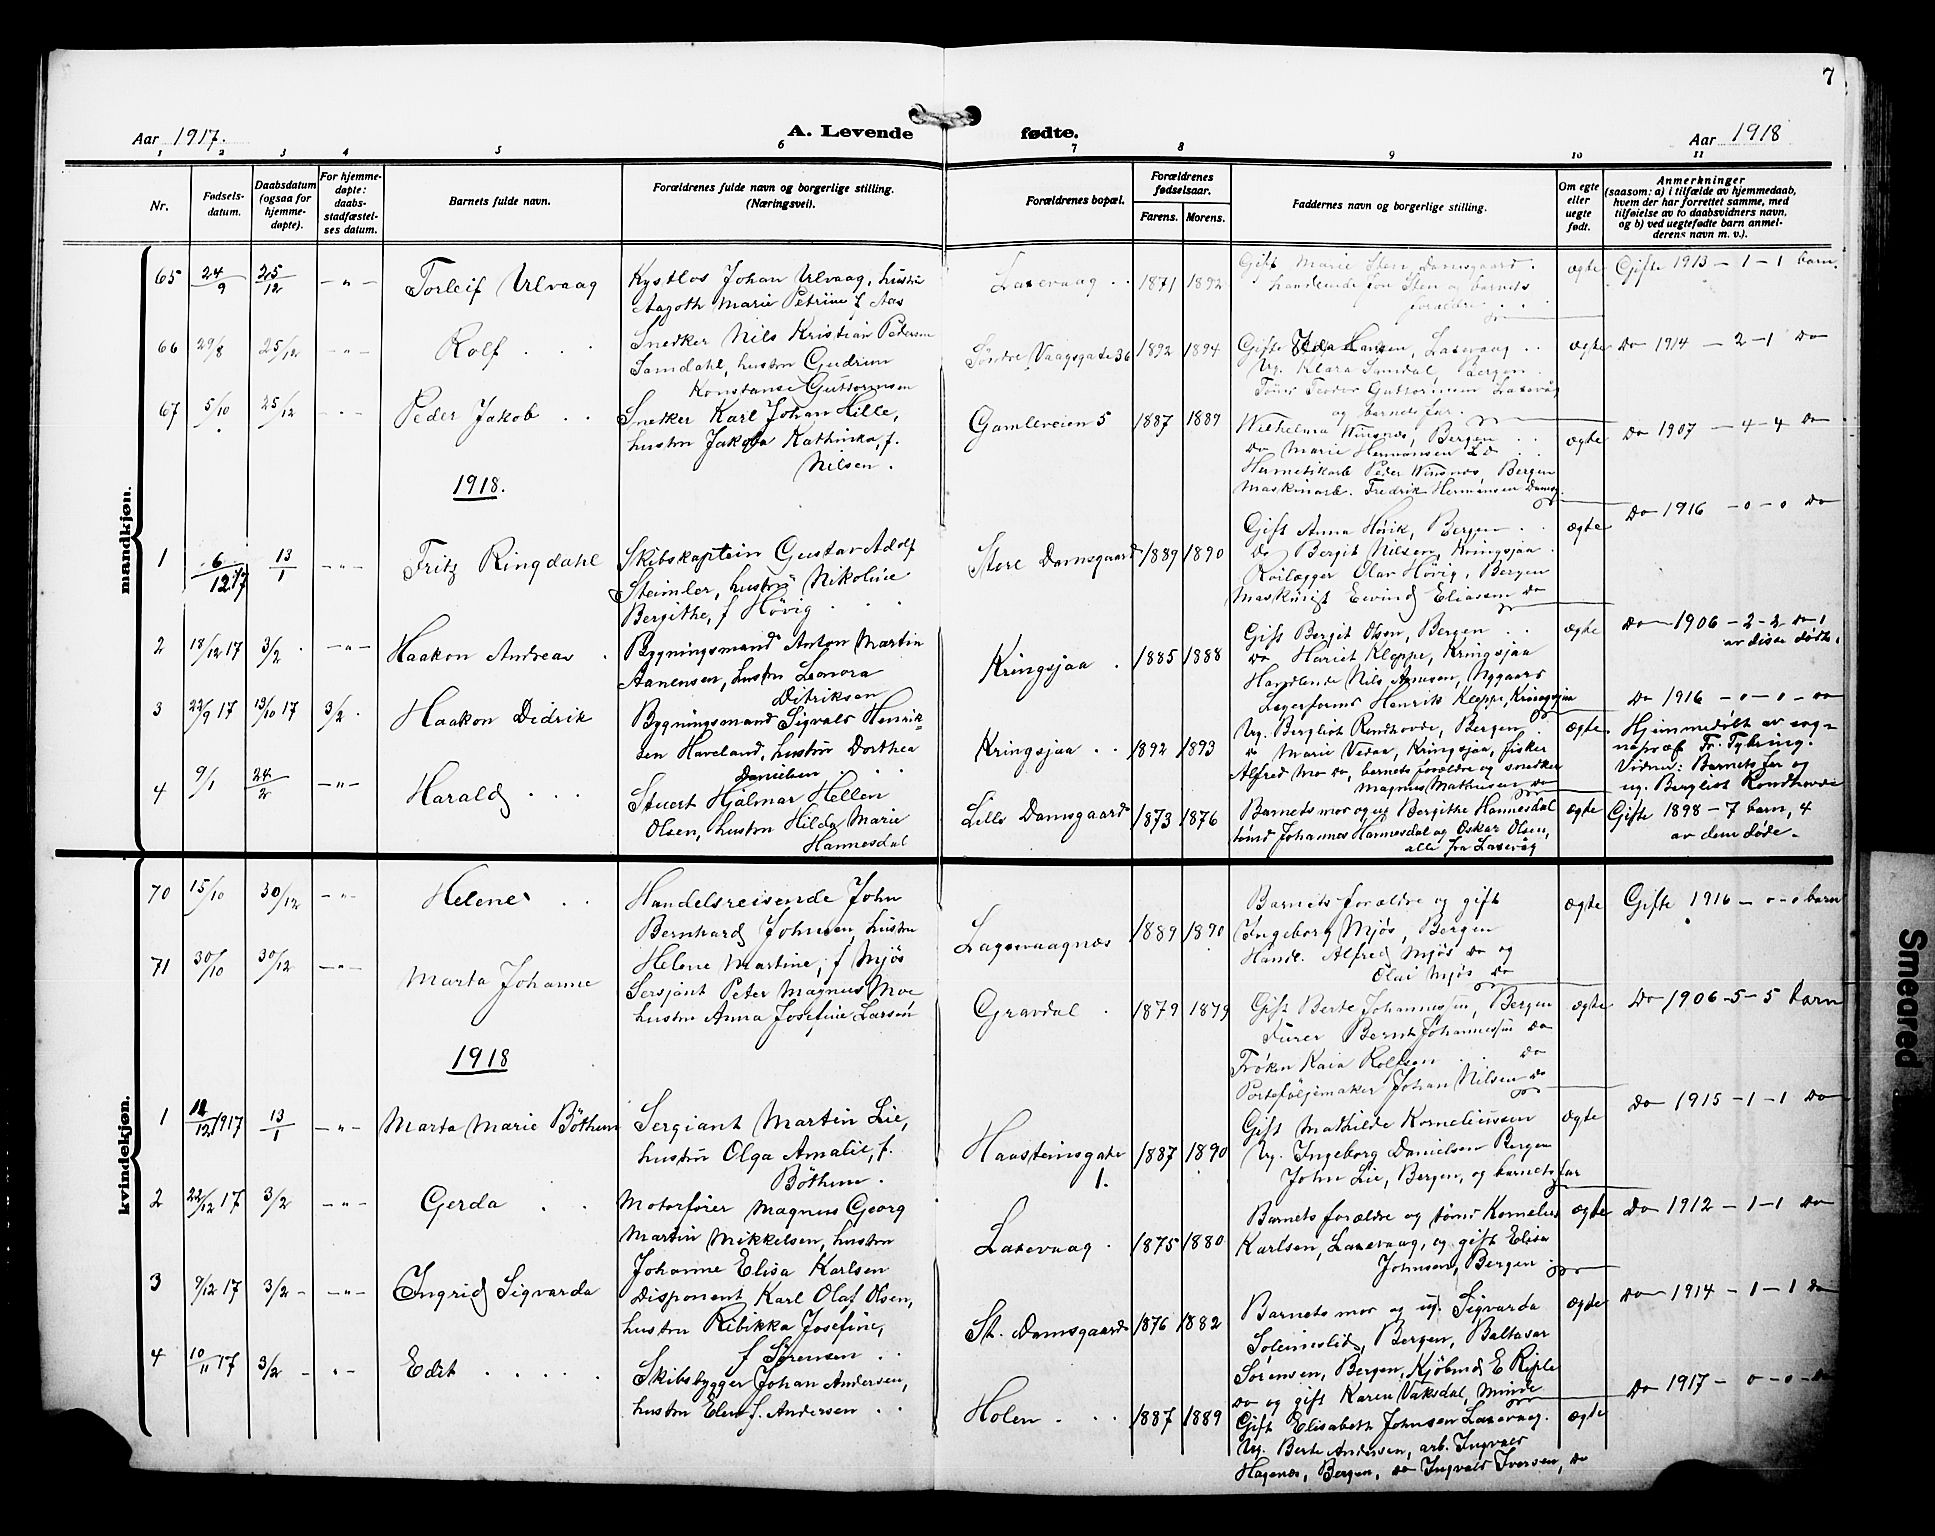 7
Aar 1917.
A. Levende fødte.
Aar 1918
1 2 3 4 5 6 7 8 9 10 11
Nr.
Fødsels-
datum.
Daabsdatum
(ogsaa for
hjemme-
døpte).
For hjemme-
døpte:
daabs-
stadfæstel-
ses datum.
Barnets fulde navn.
Forældrenes fulde navn og borgerlige stilling.
(Næringsvei).
Forældrenes bopæl.
Forældrenes
fødselsaar.
Farens. Morens.
Faddernes navn og borgerlige stilling.
Om egte
eller
uegte
født.
Anmerkninger
(saasom: a) i tilfælde av hjemmedaab,
hvem der har forrettet samme, med
tilføielse av to daabsvidners navn,
og b) ved uegtefødte barn anmel-
derens navn m. v.).
mandkjøn.
65 24/9 25/12 -"- Torleif Ulvaag
Kystlos Johan Ulvaag, hustru
Aagoth Marie Petrine f. Aas
Laxevaag 1871 1892
Gift Marie Sten, Damsgaard.
Handlende Jon Sten og barnets
forældre
ægte Gifte 1913 - 1 - 1 barn.
66 29/8 25/12 -"- Rolf
Snedker Nils Kristian Pedersen
Samdahl, hustru Gudrun
Konstanse Guttormsen
Søndre Vaagsgate 36 1892 1894
Gifte Hansen, Laxevaag
Ug. Klara Samdal, Bergen
Teodor Guttormsen Laxevåg
og barnets far.
ægte Do 1914 - 2 - 1 Do
67 5/10 25/12 -"- Peder Jakob
Snedker Karl Johan Hille,
hustru Jakoba Kathinka, f.
Nilsen.
Gamleveien 5 1887 1889
Wilhelmina Winsnes, Bergen
Do Marie Hermansen Do
Hermetikarb. Peder Winsnes Bergen
Maskinarb. Fredrik Hermansen Damsg.
ægte Do 1907 - 4 - 4 Do
1918.
1 6/12 17 13/1 -"- Fritz Ringdahl
Skibskaptein Gustav Adolf
Steimler, hustru Nikoline
Bergithe, f Hövig
Store Damsgaard 1889 1890
Gift Anna Hövik, Bergen
Do Bergit Nilsen, Kringsjaa
Kvilægger Olav Hövig, Bergen
Maskinist Eivind Eliassen Do
ægte Do 1916 - 0 - 0 Do
2 18/12 17 3/2 -"- Haakon Andreas
Bygningsmand Anton Martin
Aanensen, hustru Leonora
Ditriksen
Kringsjaa 1885 1888
Gift Bergit Olsen, Bergen
Do Hariet Kleppe, Kringsjaa
Handlende Nils Nygaard
Lagerformd Henrik Kleppe, Kringsjaa
ægte Do 1906 - 2 - 2 Do,
av disse døde 1
3 22/9 17 13/10 17 3/2 Haakon Didrik
Bygningsmand Sigvald Henrik-
sen Haveland, hustru Dorthea
Danielsen
Kringsjaa 1892 1893
Ug. Bergliot Rondhovde, Bergen
Do Marie Vedaa, Kringsjaa, fisker
Alfred Mo Do, barnets forældre og snedker
Magnus Mathiesen Do
ægte Do 1916 - 0 - 0 - Do
Hjemmedøbt av sog-
nepræst Fr. Tybring.
Vidner: Barnets far og
ug. Bergliot Rondhovde
4 9/1 24/2 -"- Harald
Stuert Hjalmar Hellen
Olsen, hustru Hilda Marie
Hannesdal
Lille Damsgaard 1873 1876
Barnets mor og ug Bergithe Hannesdal
tømd Johannes Hannesdal og Oskar Olsen,
alle fra Laxevåg
ægte Gifte 1898 - 7 barn, 4
av dem døde.
kvindekjøn.
70 15/10 30/12 -"- Helene
Handelsreisende John
Bernhard Johnsen, hustru
Helene Martine, f Mjös
Laxevaagnes 1889 1890
Barnets forældre og gift
Ingeborg Mjös, Bergen
Handl. Alfred Mjös Do og
Olai Mjös Do
ægte Gifte 1916 - 0 - 0 barn
71 30/10 30/12 -"- Marta Johanne
Sersjant Peter Magnus Moe
hustru Anna Josefine Larsen
Gravdal 1879 1879
Gift Berte Johannessen, Bergen
Furer Bernt Johannessen Do
Frøken Kaia Rolfsen Do
Porteføljemaker Johan Nilsen Do
ægte Do 1906 - 5 - 5 barn
1918
1 11/12 1917 13/1 -"- Marta Marie Böthun
Sergiant Martin Lie,
hustru Olga Amalie, f.
Böthun.
Haasteinsgate 1. 1887 1890
Gift Mathilde Korneliussen
Ug. Ingeborg Danielsen Bergen
John Lie, Bergen, og barnets far
ægte Do 1915 - 1 - 1 Do
2 22/12 17 3/2 -"- Gerda
Motorfører Magnus Georg
Martin Mikkelsen, hustru
Johanne Elisa Karlsen
Laxevaag 1875 1880
Barnets forældre og tømd Kornelius
Karlsen, Laxevaag, og gift Elisa
Johnsen, Bergen
ægte Do 1912 - 1 - 1 Do
3 9/12 17 3/2 -"- Ingrid Sigvarda
Disponent Karl Olaf Olsen,
hustru Ribikka Josefine,
f Sørensen
St. Damsgaard 1876 1882
Barnets mor og ug. Sigvarda
Soleimslid, Bergen, Baltasar
Sørensen, Bergen, Kjøbmd E Riple
Do og gift Karen Vaksdal, Minde
ægte Do 1914 - 1 - 1 Do
4 10/11 17 3/2 -"- Edit
Skibsbygger Johan Andersen,
hustru Elen f. Andersen
Holen 1887 1889
Gift Elisabeth Johnsen Laxevaag.
Ug. Berte Andersen, arb. Ingvald
Hagenes, Bergen, Do Ingvald Iversen, Do
ægte Do 1917 - 0 - 0 - Do
Smeared